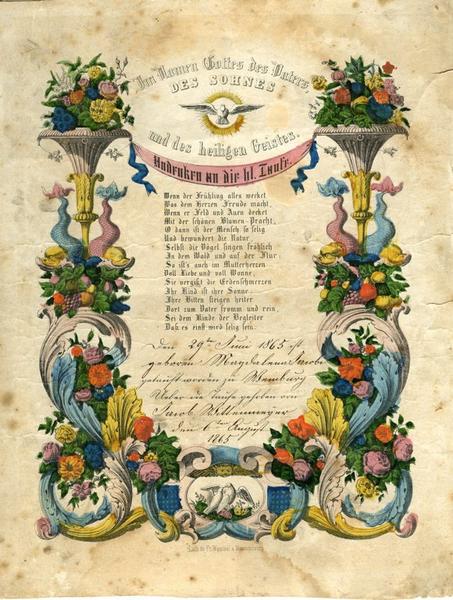 Im Namen Gottes des Vaters
DES SOHNES
und des heiligen Geistes.
Andenken an die hl. Taufe.
Wenn der Frühling alles wecket
Was dem Herzen Freude macht,
Wenn er Feld und Auen decket
Mit der schönen Blumen-Pracht,
O dann ist der Mensch so selig
Und bewundert die Natur
Selbst die Vögel singen fröhlich
In dem Wald und auf der Flur
So ist's auch im Mutterherzen
Voll Liebe und voll Wonne,
Sie vergißt die Erdenschmerzen
Ihr Kind ist ihre Sonne
Ihre Bitten steigen heiter
Dort zum Vater fromm und rein,
Sei dem Kinde der Begleiter
Daß es einst wird selig sein.
Den 29ten Juni 1865 ist
geboren Magdalena Jacobe
getauft worden zu
Ueber die Taufe gehoben von
Jacob
den 6ten August
1865